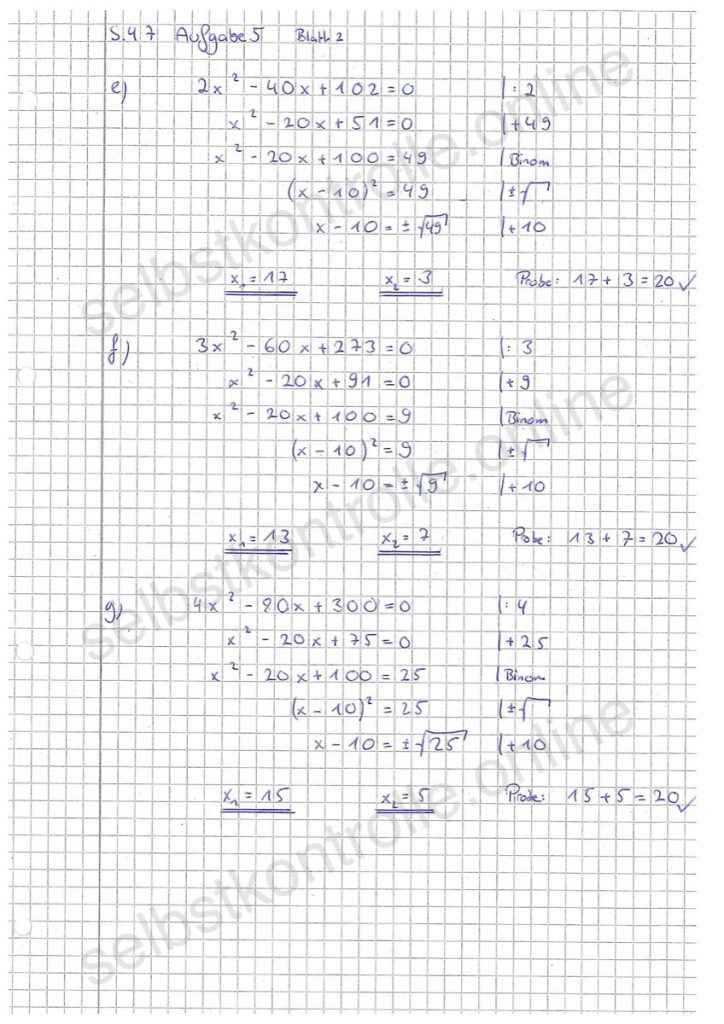 S.47 Aufgabe 5 Blatt 2
e) 2x² - 40x + 102 = 0 | : 2
x² - 20x + 51 = 0 | + 49
x² - 20x + 100 = 49 | Binom
(x - 10)² = 49 | ±√
x - 10 = ±√49 | + 10
x₁ = 17 x₂ = 3 Probe: 17 + 3 = 20 ✓
f) 3x² - 60x + 273 = 0 | : 3
x² - 20x + 91 = 0 | + 9
x² - 20x + 100 = 9 | Binom
(x - 10)² = 9 | ±√
x - 10 = ±√9 | + 10
x₁ = 13 x₂ = 7 Probe: 13 + 7 = 20 ✓
g) 4x² - 80x + 300 = 0 | : 4
x² - 20x + 75 = 0 | + 25
x² - 20x + 100 = 25 | Binom
(x - 10)² = 25 | ±√
x - 10 = ±√25 | + 10
x₁ = 15 x₂ = 5 Probe: 15 + 5 = 20 ✓
selbstkontrolle.online
selbstkontrolle.online
selbstkontrolle.online